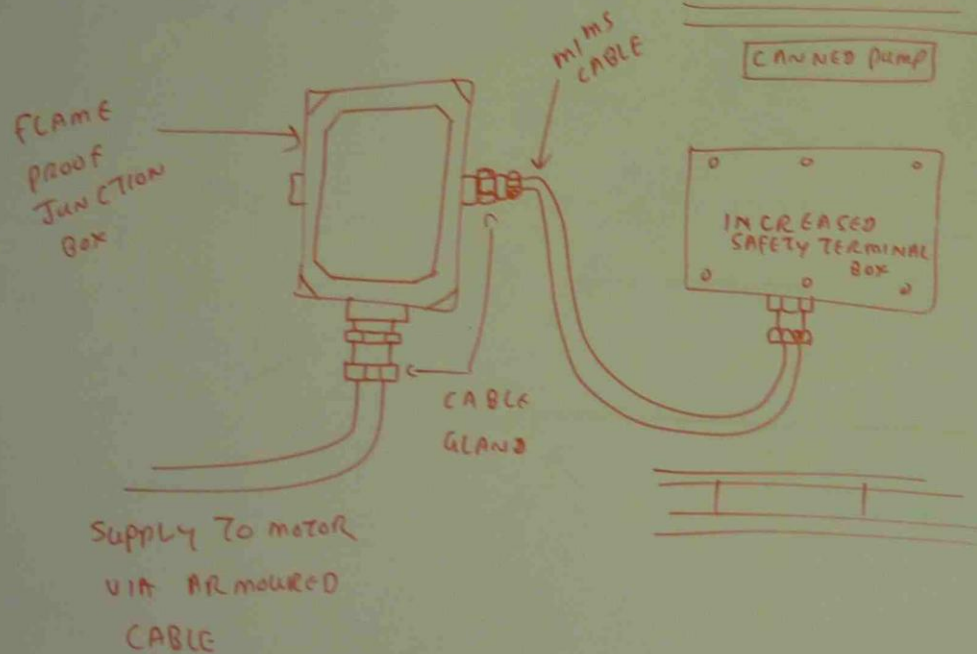 FLAME
PROOF
JUNCTION
BOX
MIMS
CABLE
CANNED PUMP
INCREASED
SAFETY TERMINAL
BOX
CABLE
GLAND
SUPPLY TO MOTOR
VIA ARMOURED
CABLE